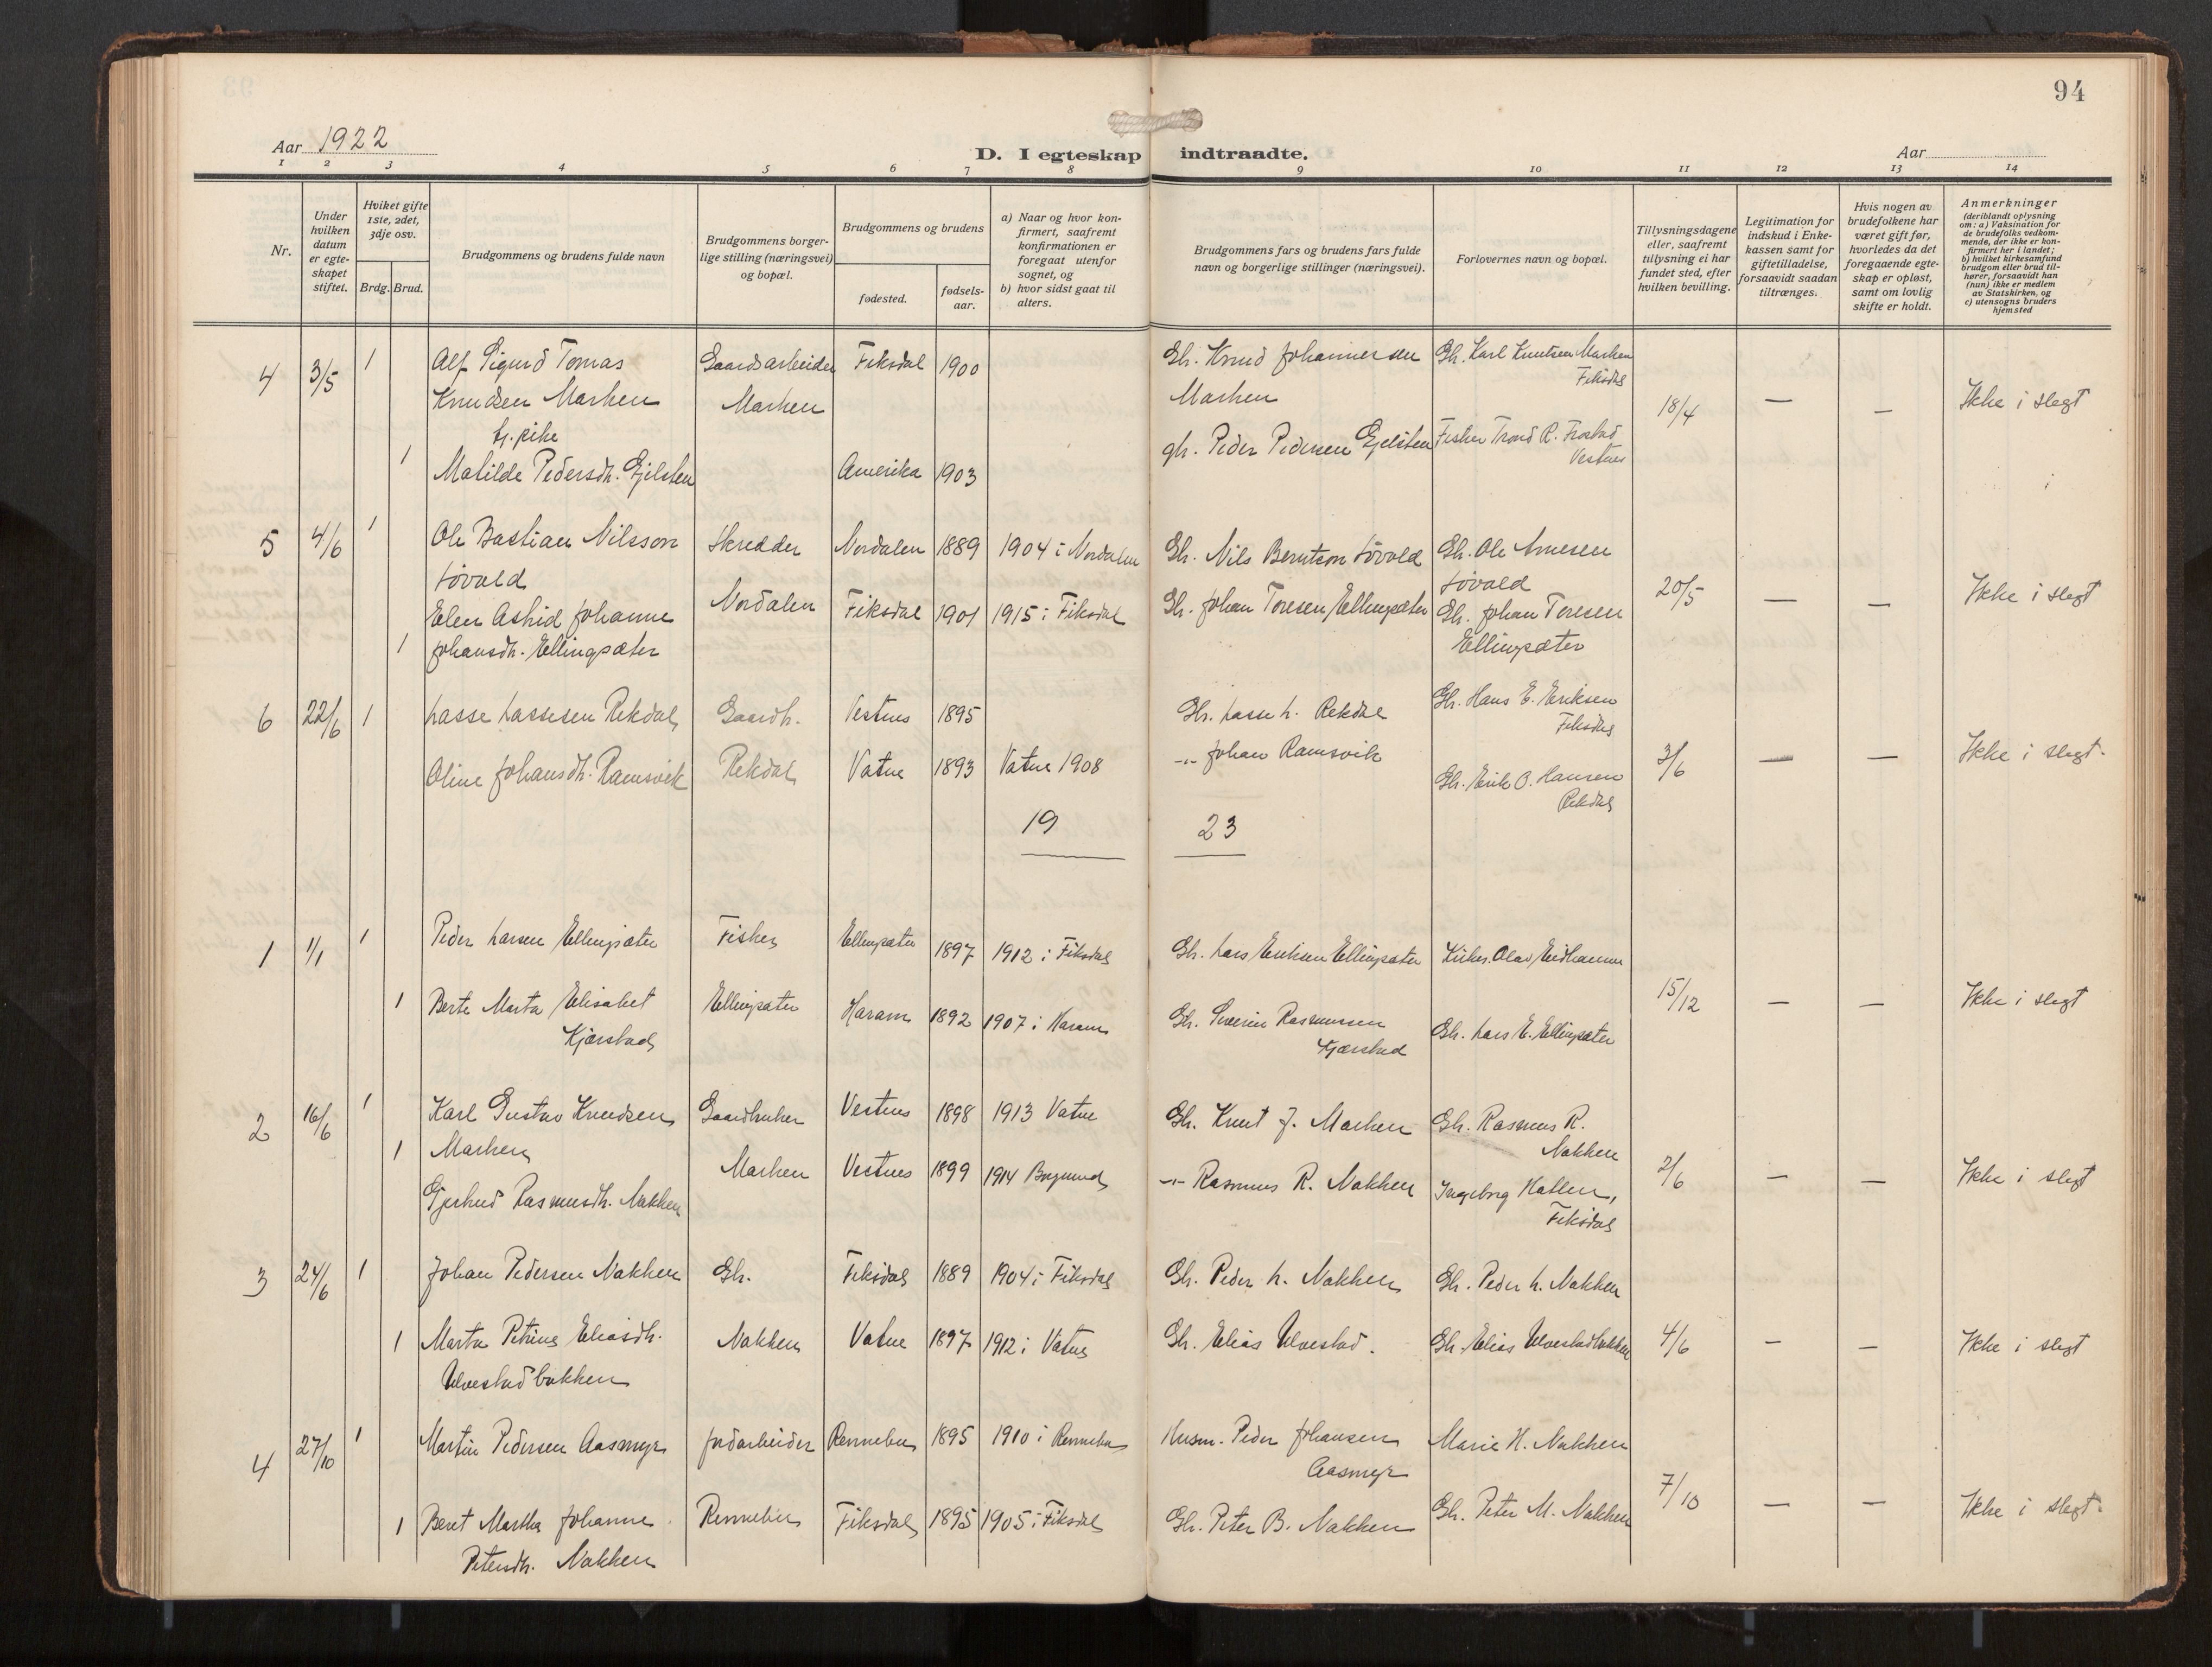 94
Aar 1922
D. I egteskap indtraadte.
Aar
1 2 3 4 5 6 7 8 9 10 11 12 13 14
Nr.
Under hvilken datum er egteskapet stiftet.
Hviket gifte 1ste, 2det, 3dje osv.
Brdg. Brud.
Brudgommens og brudens fulde navn
Brudgommens borgerlige stilling (næringsvei) og bopæl.
Brudgommens og brudens
fødested.
fødselsaar.
a) Naar og hvor konfirmert, saafremt konfirmationen er foregaat utenfor sognet, og
b) hvor sidst gaat til alters.
Brudgommens fars og brudens fars fulde navn og borgerlige stillinger (næringsvei).
Forlovernes navn og bopæl.
Tillysningsdagene eller, saafremt tillysning ei har fundet sted, efter hvilken bevilling.
Legitimation for indskud i Enkekassen samt for giftetilladelse, forsaavidt saadan tiltrænges.
Hvis nogen av brudefolkene har været gift før, hvorledes da det foregaaende egteskap er opløst, samt om lovlig skifte er holdt.
Anmerkninger
(deriblandt oplysning om: a) Vaksination for de brudefolks vedkommende, der ikke er konfirmert her i landet; b) hvilket kirkesamfund brudgom eller brud tilhører, forsaavidt han (hun) ikke er medlem av Statskirken, og c) utensogns bruders hjemsted
4 3/5 1 Alf Sigurd Tomas Gaardsarbeider Fiksdal 1900 Gh. Knud Johannessen Gh. Karl Knutsen Marken
Knudsen Marken Marken Marken Fiksdal
fr. pike 18/4 — — Ikke i slegt
1 Matilde Pedersdh. Gjelsten Amerika 1903 gh. Peder Pedersen Gjelsten Fisker Trond R. Frostad
Vestnes
5 4/6 1 Ole Bastian Nilsson Skredder Nordalen 1889 1904 i Nordalen Gh. Nils Berntson Løvold Gh. Ole Arnesen
Løvold Løvold
Elen Astrid Johanne Nordalen Fiksdal 1901 1915 i Fiksdal Gh. Johan Toresen Ellingsæter Gh. Johan Toresen 20/5 — — Ikke i slegt
1 Johansdh. Ellingsæter Ellingsæter
6 22/6 1 Lasse Lassesen Rekdal Gaardh. Vestnes 1895 Gh. Lasse L. Rekdal Gh. Hans E. Eriksen
Fiksdal
Oline Johansdh. Ramsvik Rekdal Vatne 1893 Vatne 1908 -"- Johan Ramsvik Gh. Erik O. Hansen 3/6 — — Ikke i slegt.
Rekdal
19 23
1 1/1 1 Peder Larsen Ellingsæter Fisker Ellingsæter 1897 1912 i Fiksdal Gh. Lars Eriksen Ellingsæter Kirkes. Olav Eidhammer
1 Berte Marta Elisabet Ellingsæter Haram 1892 1907 i Haram Gh. Severin Rasmussen Gh. Lars E. Ellingsæter 15/12 — — Ikke i slegt
Kjærstad Kjærstad
2 16/6 1 Karl Gustav Knudsen Gaardbruker Vestnes 1898 1913 Vatne Gh. Knut J. Marken Gh. Rasmus R.
1 Marken Nakken
Gjertrud Rasmusdh. Nakken Marken Vestnes 1899 1914 Borgund -"- Rasmus R. Nakken Ingeborg Hallen, 2/6 — — Ikke i slegt
Fiksdal
3 24/6 1 Johan Pedersen Nakken Gh. Fiksdal 1889 1904 i Fiksdal Gh. Peder L. Nakken Gh. Peder L. Nakken
1 Marta Petrine Eliasdh. Nakken Vatne 1897 1912 i Vatne Gh. Elias Ulvestad. Gh. Elias Ulvestadbakken 4/6 — — Ikke i slegt
Ulvestadbakken
4 27/10 1 Martin Pedersen Aasmyr Jordarbeider Rennebu 1895 1910 i Rennebu Husm. Peder Johansen Marie H. Nakken
Aasmyr
1 Beret Martha Johanne Rennebu Fiksdal 1895 1905 i Fiksdal Gh. Peter B. Nakken Gh. Peter M. Nakken 7/10 — — Ikke i slegt.
Petersdh. Nakken